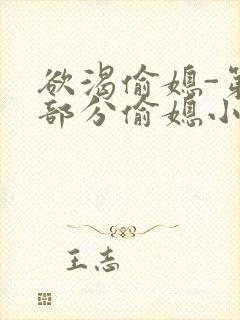 欲渴偷媳-第
部分偷媳小
王志